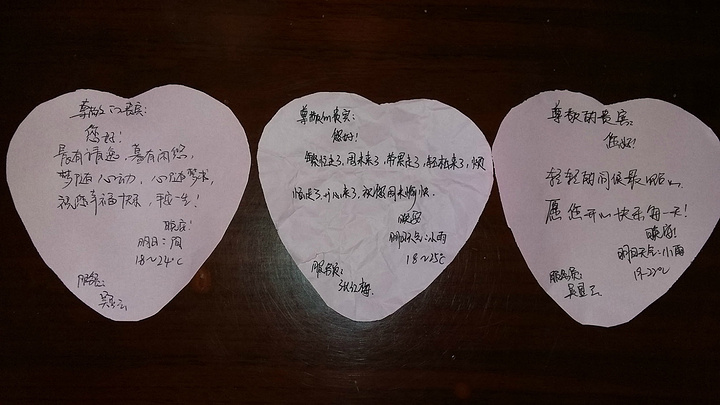 尊敬的贵宾:
您好!
晨有清逸,暮有闲悠,
梦随心动,心随梦求,
祝您幸福快乐,
晚安!
明日:雨
18~24℃
服务员:
尊敬的贵宾:
您好!
繁忙走了,周末来了,
轻松来了,烦
恼走了,开心来了,祝您周末愉快.
晚安
明日天气:小雨
18~25℃
服务员:
张红梅.
尊敬的贵宾:
您好!
轻轻的问候最
愿您开心快乐每一天!
晚安!
明日天气:小雨
19~22℃
服务员: